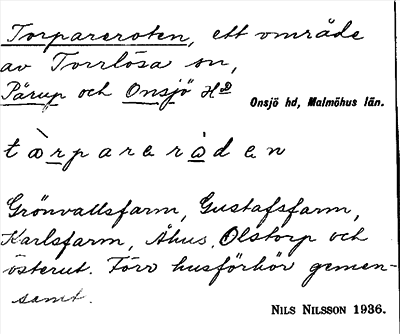 Torpareroten, ett område
av Torrlösa sn,
Pårup och Onsjö Hd
Onsjö hd, Malmöhus län.
tòrpareròden
Grönvallsfarm, Gustafsfarm,
Karlsfarm, Åhus, Olstorp och
österut. Förr husförhör gemen-
samt.
NILS NILSSON 1936.